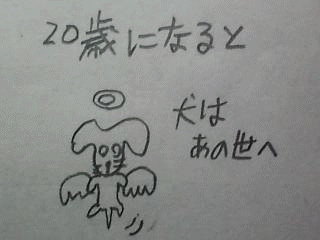 20歳になると
犬は
あの世へ